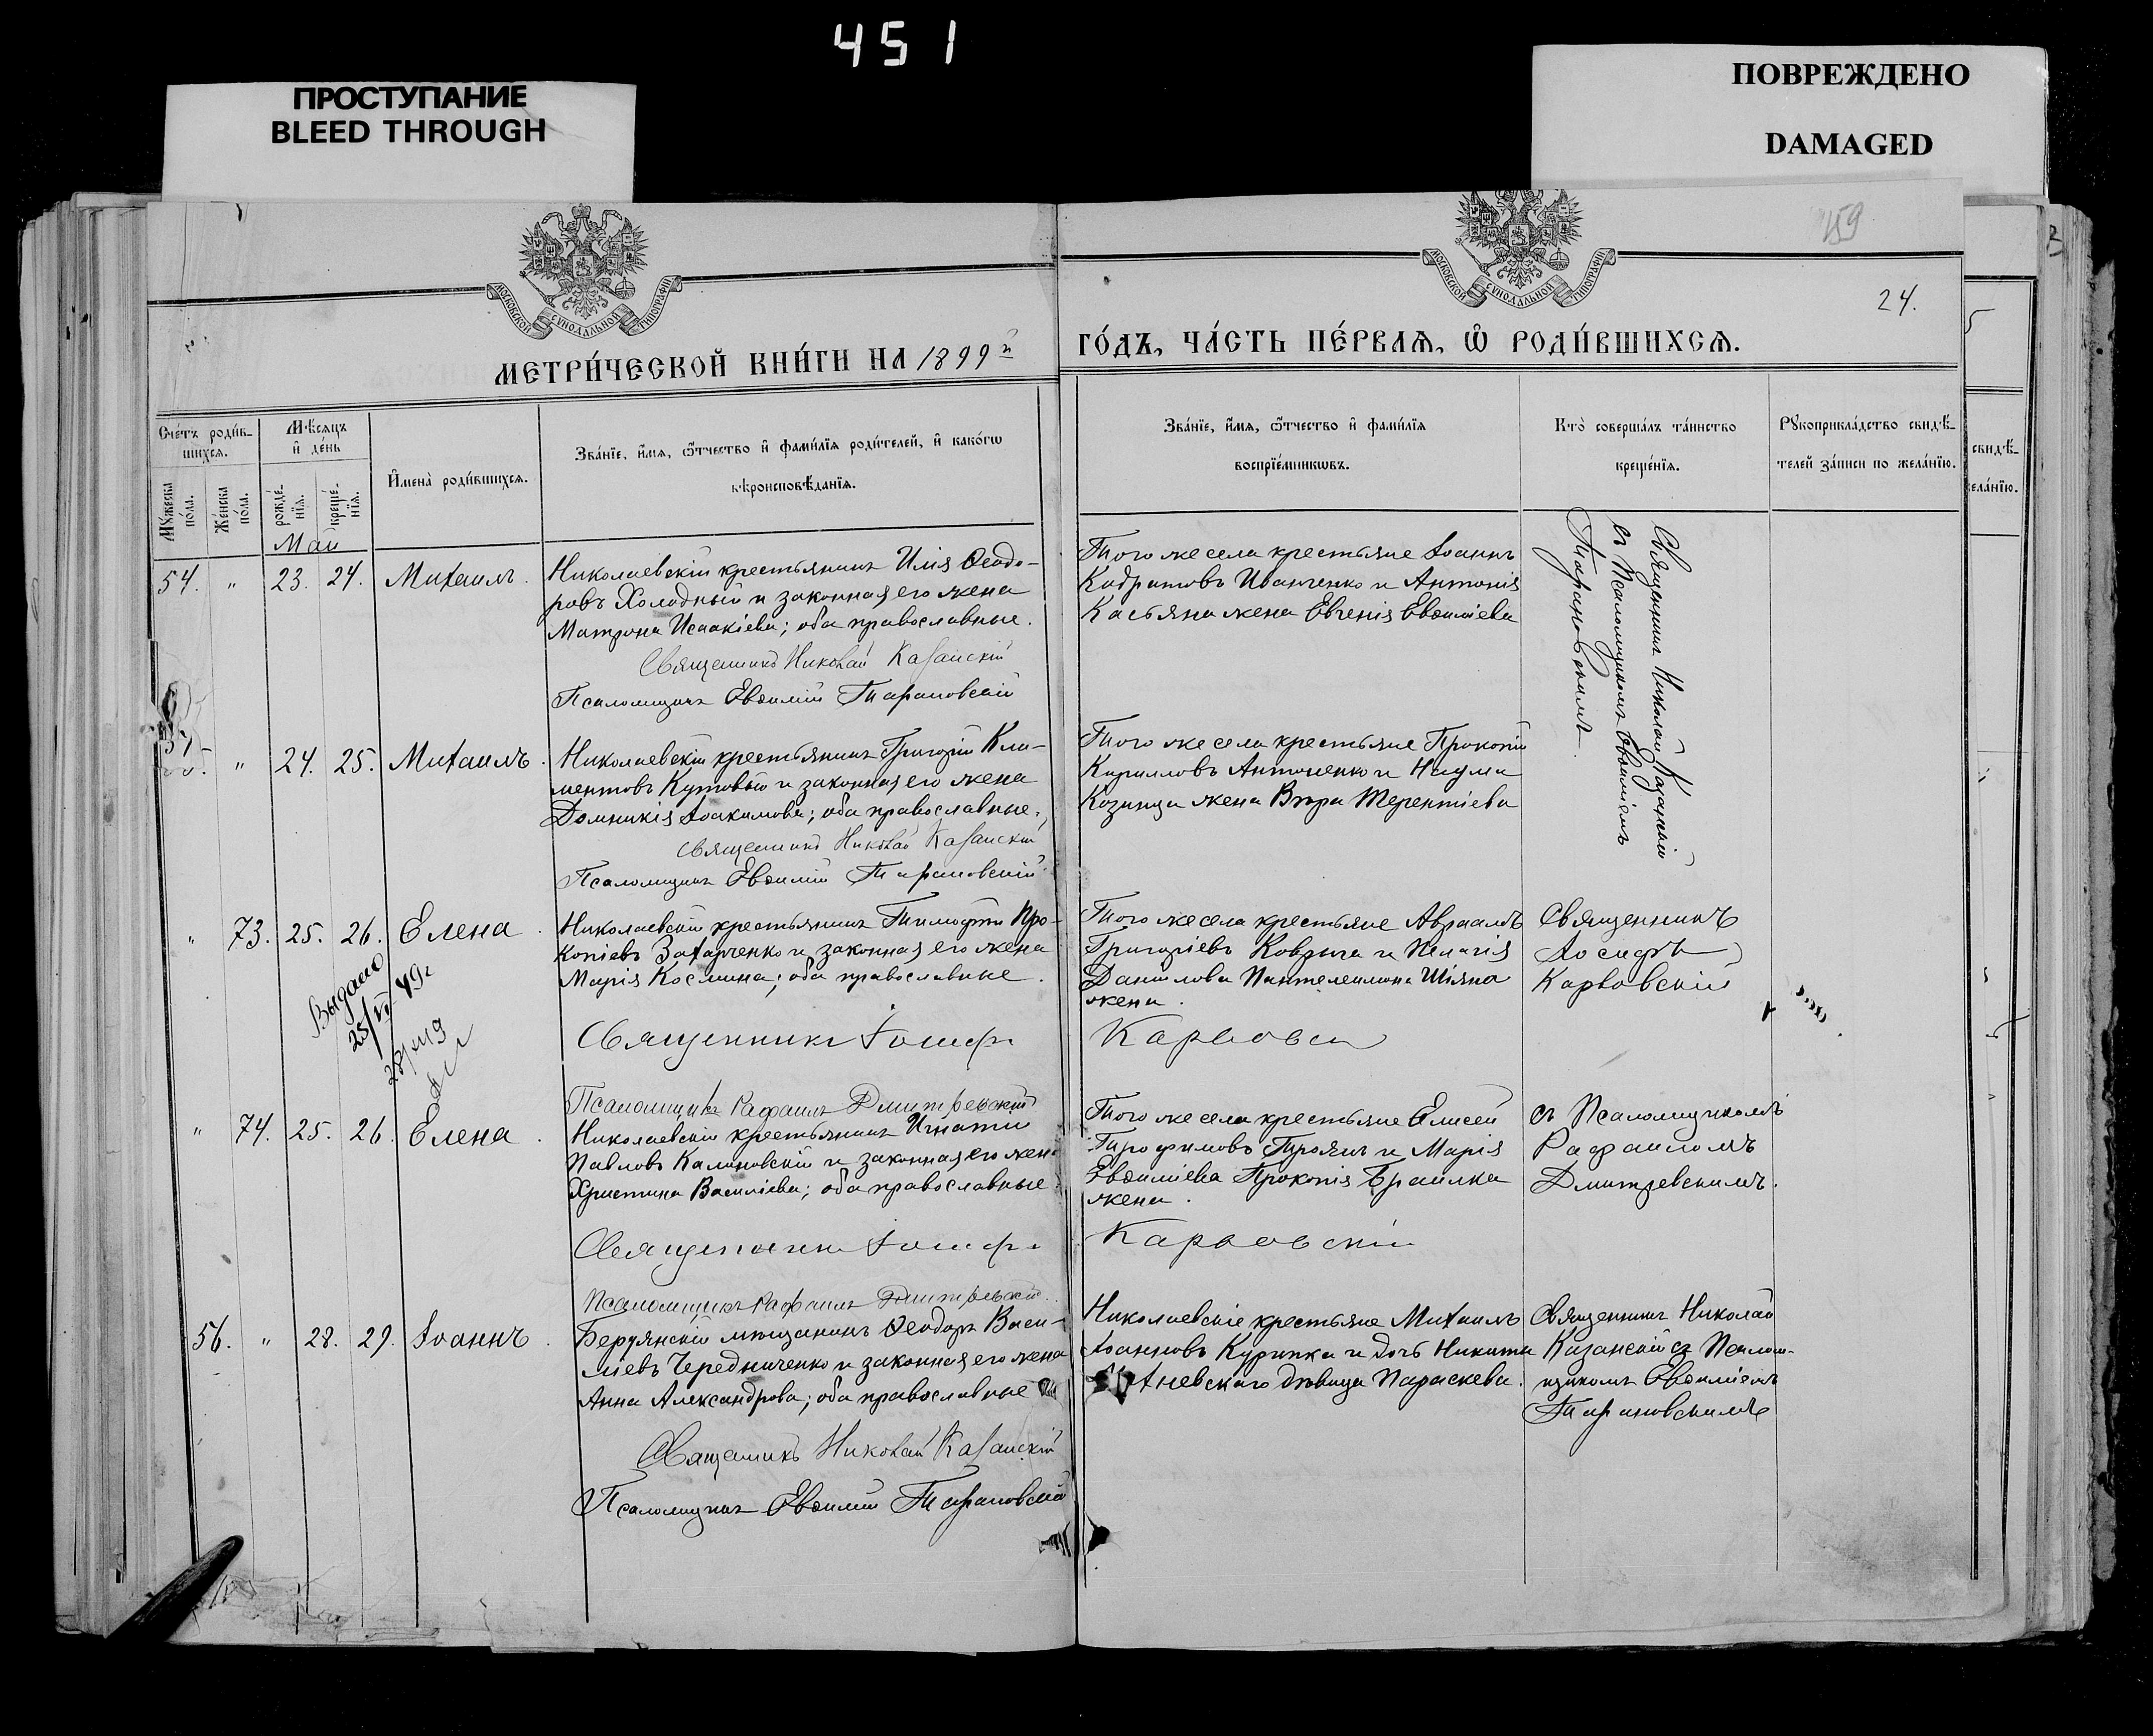 451
ПРОСТУПАНИЕ
BLEED THROUGH
ПОВРЕЖДЕНО
DAMAGED
159
24.
МОСКОВСКОЙ СѴНОДАЛЬНОЙ ТИПОГРАФІИ
МОСКОВСКОЙ СѴНОДАЛЬНОЙ ТИПОГРАФІИ
МЕТРИ́ЧЕСКОЙ КНИ́ГИ НА 1899й
ГО́ДЪ, ЧА́СТЬ ПЕ́РВАЯ, Ѡ РОДИ́ВШИХСЯ.
Сче́тъ роди́в-
шихся.
Мꙋ́жеска по́ла.
Же́нска по́ла.
Мѣ́сяцъ
и҆ де́нь
рожде́-
нїя.
креще́-
нїя.
И҆мена̀ роди́вшихся.
Зва́нїе, и҆́мя, ѻ҆́тчество и҆ фами́лїя роди́телей, и҆ како́гѡ
вѣроисповѣ́данїя.
Зва́нїе, и҆́мя, ѻ҆́тчество и҆ фами́лїя
воспрїе́мникѡвъ.
Кто̀ соверша́лъ та́инство
креще́нїя.
Рꙋкоприкла́дство свидѣ́-
телей за́писи по жела́нїю.
свидѣ́-
ела́нїю.
Май
54. " 23. 24. Михаилъ.
Николаевскій крестьянинъ Илія Ѳеодо-
ровъ Холодный и законная его жена
Матрона Исаакіева; оба православные.
Священникъ Николай Казанскій
Псаломщикъ Евѳимій Тарановскій
Того же села крестьяне Іоаннъ
Кодратовъ Иванченко и Антонія
Касьяна жена Евгенія Евѳиміева
Священникъ Николай Казанскій
съ Псаломщикомъ Евѳиміемъ
Тарановскимъ.
" 24. 25. Михаилъ.
Николаевскій крестьянинъ Григорій Кли-
ментовъ Кутовый и законная его жена
Домникія Іоакимова; оба православные.
Священникъ Николай Казанскій
Псаломщикъ Евѳимій Тарановскій
Того же села крестьяне Прокопій
Кирилловъ Антоненко и Наума
Козинца жена Вѣра Терентіева
" 73. 25. 26. Елена.
Николаевскій крестьянинъ Тимофей Про-
копіевъ Захарченко и законная его жена
Марія Косьмина; оба православные.
Священникъ Іосифъ
Псаломщикъ Рафаилъ Дмитревскій
Того же села крестьяне Авраамъ
Григоріевъ Коврыга и Пелагія
Данилова Пантелеимона Шіяна
жена.
Карвовскій
Священникъ
Іосифъ
Карвовскій
Выдано
25/VI 49г
" 74. 25. 26. Елена.
Николаевскій крестьянинъ Игнатій
Павловъ Калиновскій и законная его жена
Христина Василіева; оба православные.
Священникъ Іосифъ
Псаломщикъ Рафаилъ Дмитревскій.
Того же села крестьяне Елисей
Трофимовъ Троянъ и Марія
Евѳиміева Прокопія Браилка
жена.
Карвовскій
съ Псаломщикомъ
Рафаиломъ
Дмитревскимъ.
56. " 28. 29. Іоаннъ.
Бердянскій мѣщанинъ Ѳеодоръ Васи-
ліевъ Чередниченко и законная его жена
Анна Александрова; оба православные
Священникъ Николай Казанскій
Псаломщикъ Евѳимій Тарановскій
Николаевскіе крестьяне Михаилъ
Іоанновъ Курипка и дочь Никиты
дѣвица Параскева.
Священникъ Николай
Казанскій съ Псалом-
щикомъ Евѳиміемъ
Тарановскимъ